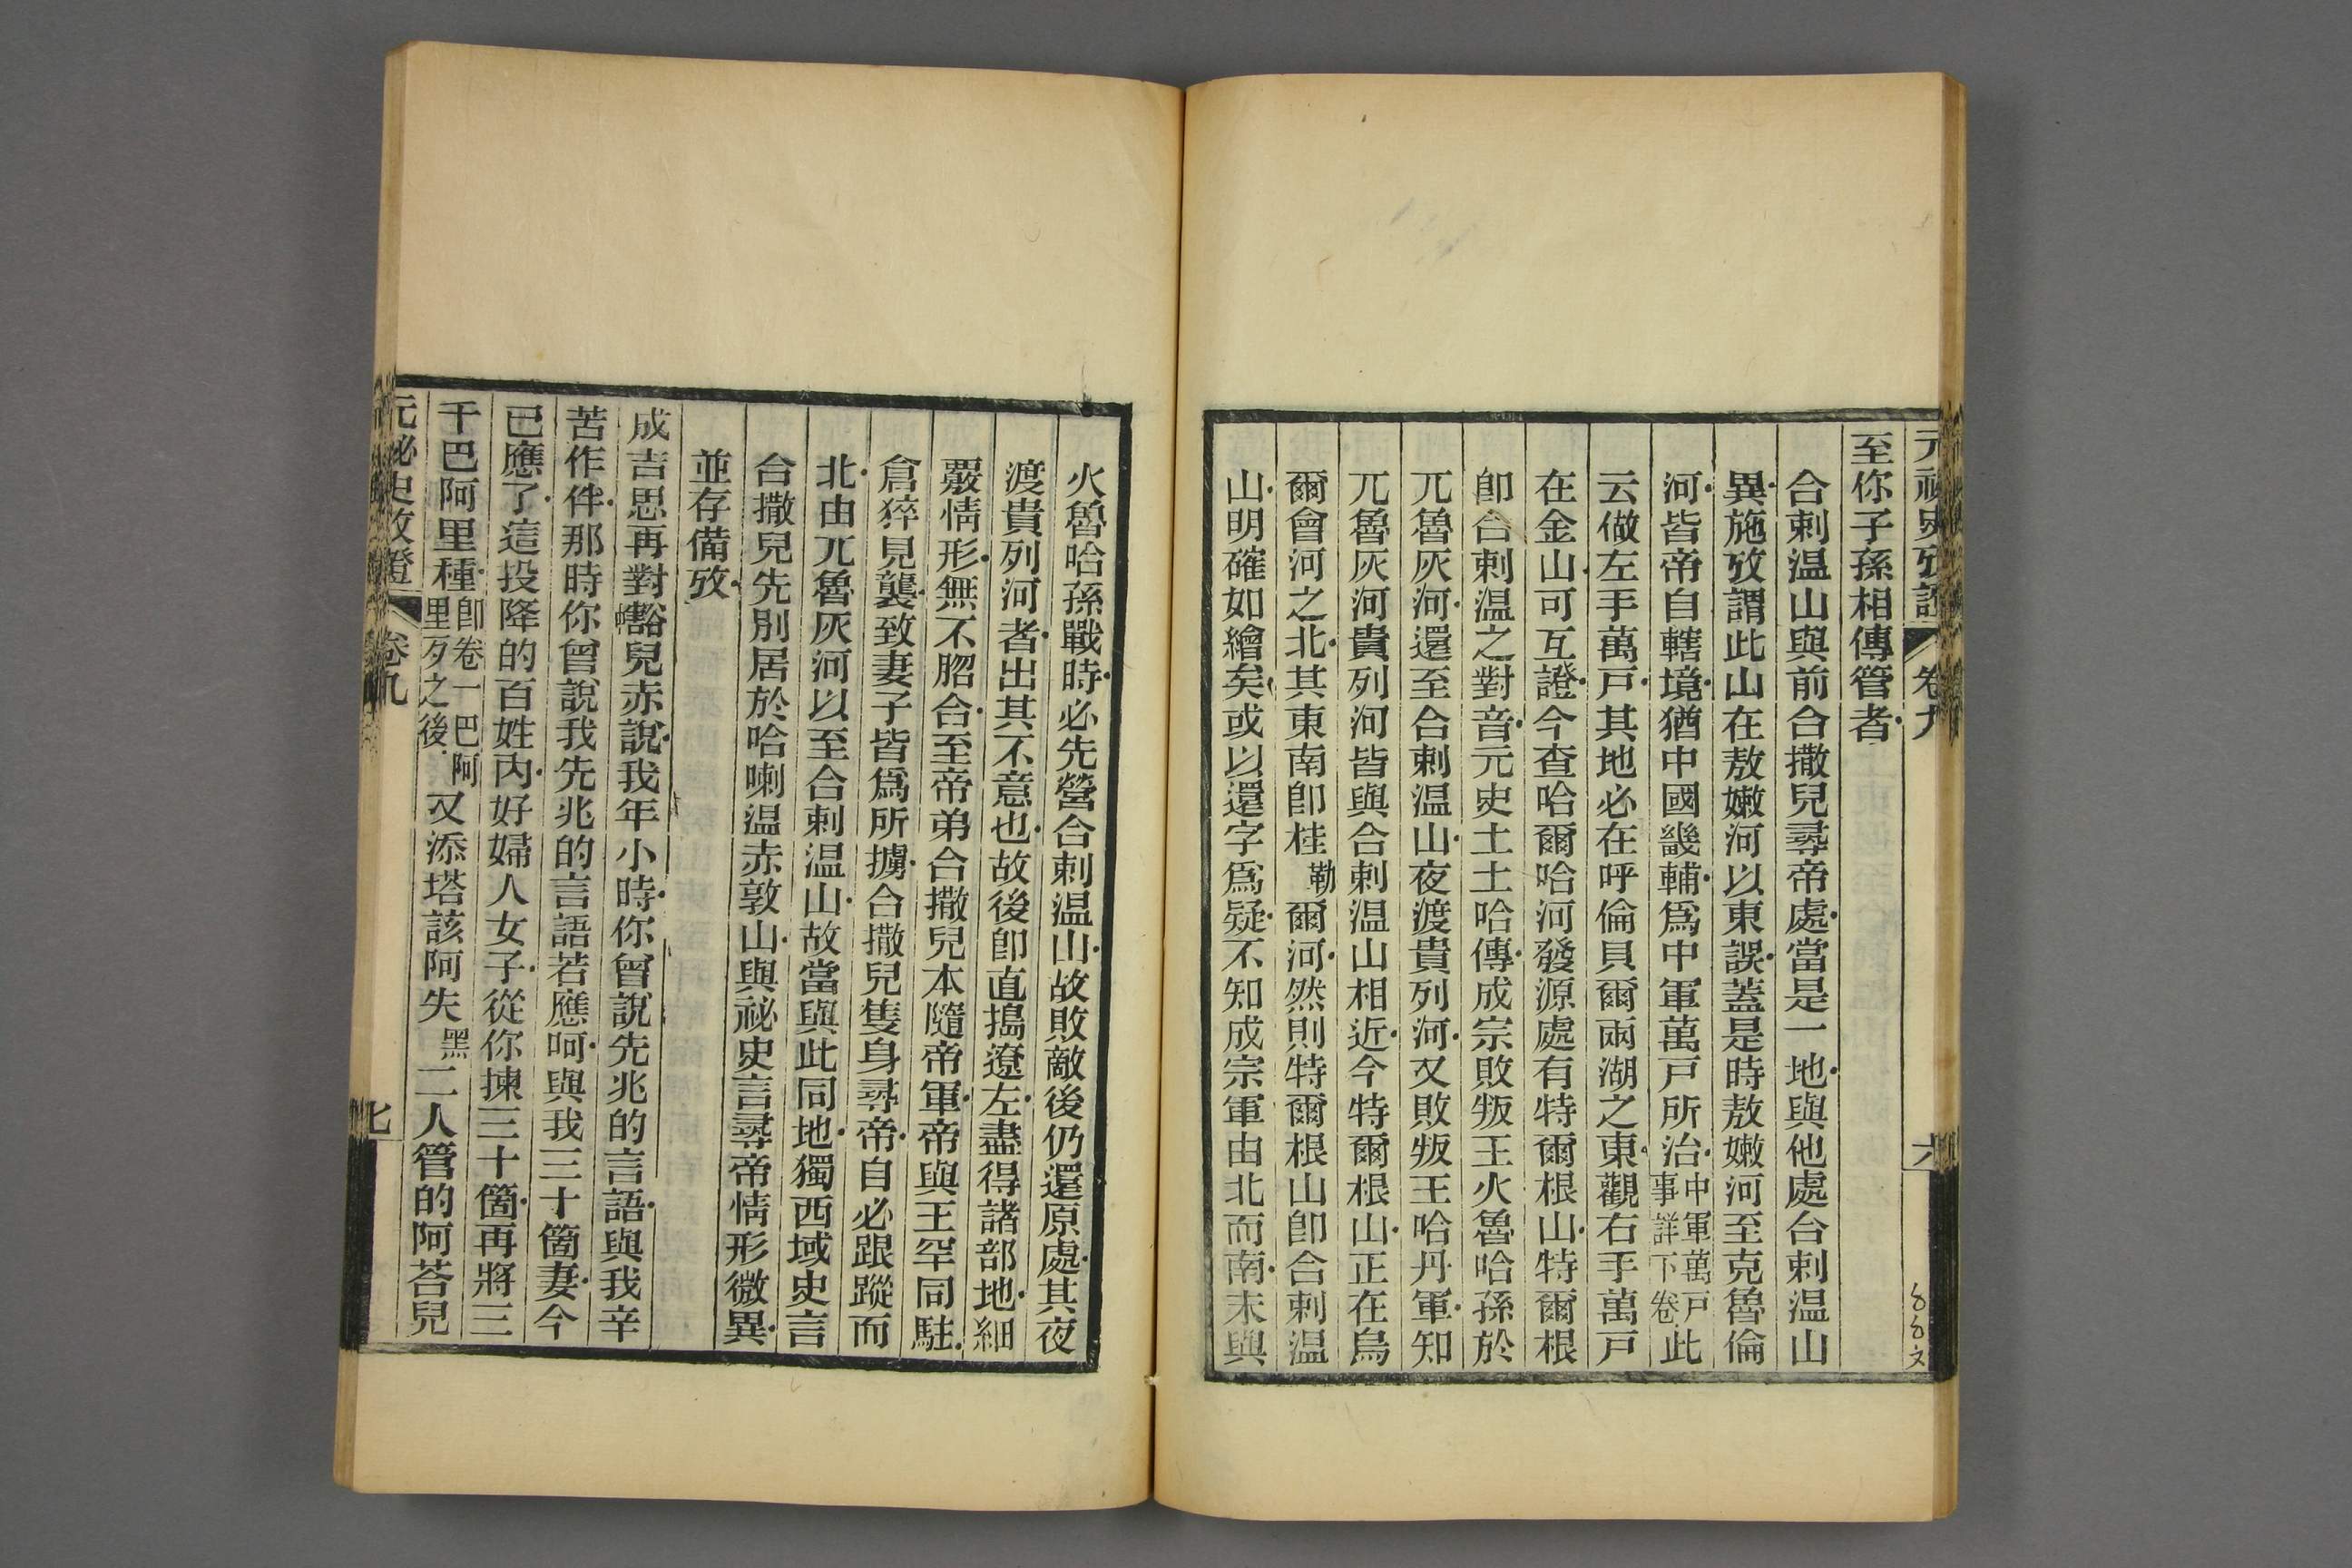 元祕史攷證 卷九 六
至你子孫相傳管者
合剌温山與前合撒兒尋帝處當是一地與他處合剌温山
異施攷謂此山在敖嫩河以東誤蓋是時敖嫩河至克魯倫
河皆帝自轄境猶中國畿輔爲中軍萬戸所治中軍萬戸事詳下卷此
云做左手萬戸其地必在呼倫貝爾兩湖之東觀右手萬戸
在金山可互證今查哈爾哈河發源處有特爾根山特爾根
卽合剌温之對音元史土土哈傳成宗敗叛王火魯哈孫於
兀魯灰河還至合剌温山夜渡貴列河又敗叛王哈丹軍知
兀魯灰河貴列河皆與合剌温山相近今特爾根山正在烏
爾會河之北其東南卽桂勒爾河然則特爾根山卽合剌温
山明確如繪矣或以還字爲疑不知成宗軍由北而南未與
火魯哈孫戰時必先營合剌温山故敗敵後仍還原處其夜
渡貴列河者出其不意也故後卽直搗遼左盡得諸部地細
覈情形無不脗合至帝弟合撒兒本隨帝軍帝與王罕同駐
倉猝見襲致妻子皆爲所擄合撒兒隻身尋帝自必跟蹤而
北由兀魯灰河以至合剌温山故當與此同地獨西域史言
合撒兒先別居於哈喇温赤敦山與祕史言尋帝情形微異
並存備攷
成吉思再對豁兒赤說我年小時你曾說先兆的言語與我辛
苦作伴那時你曾說我先兆的言語若應呵與我三十箇妻今
已應了這投降的百姓內好婦人女子從你揀三十箇再將三
千巴阿里種卽卷一巴阿里歹之後又添塔該阿失黑二人管的阿荅兒
元祕史攷證 卷九 七